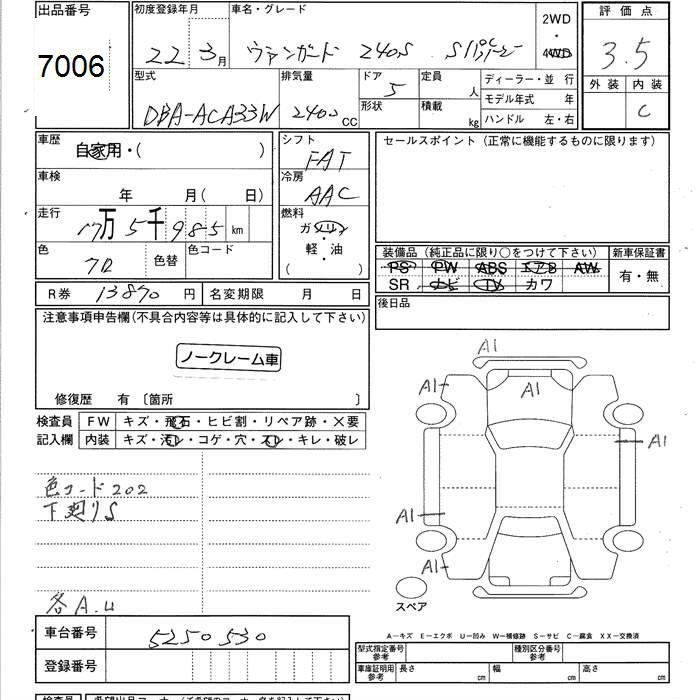 出品番号
7006
初度登録年月
22 3月
車名・グレード
ヴァンガード 240S
2WD
・
4WD
評価点
3.5
外装 内装
C
型式
DBA-ACA33W
排気量
2400cc
ドア
5
形状
定員
人
積載
kg
ディーラー・並 行
モデル年式 年
ハンドル 左・右
車歴
自家用・( )
車検
年 月( 日)
走行
17万5千985km
色
クロ
色替
色コード
シフト
FAT
冷房
AAC
燃料
ガソリン
・
軽・油
( )
セールスポイント(正常に機能するものに限ります)
装備品(純正品に限り○をつけて下さい)
PS PW ABS エアB AW
SR ナビ TV カワ
新車保証書
有・無
R券 13870円
名変期限 月 日
後日品
注意事項申告欄(不具合内容等は具体的に記入して下さい)
ノークレーム車
修復歴 有 〔箇所 〕
検査員
記入欄
FW キズ・飛石・ヒビ割・リペア跡・×要
内装 キズ・汚レ・コゲ・穴・スレ・キレ・破レ
色コード202
下廻りS
各A.U
A1
A1
A1
A1
A1
A1
スペア
A-キズ E-エクボ U-凹み W-補修跡 S-サビ C-腐食 XX-交換済
車台番号
5250530
登録番号
型式指定番号
参考
種別区分番号
参考
車庫証明用
参考
長さ cm
幅 cm
高さ cm
検査員